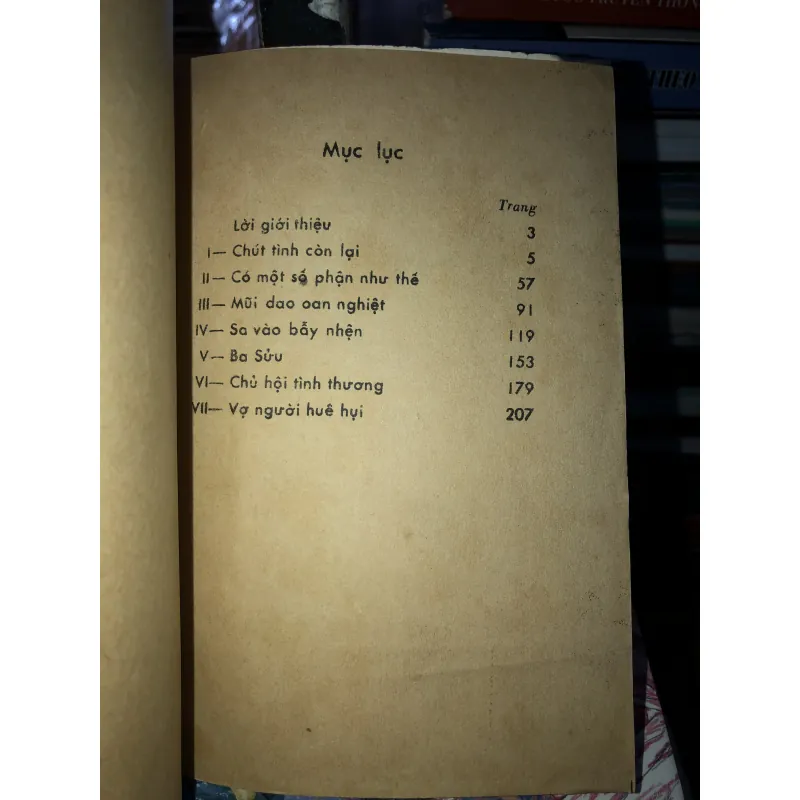 TRUYỀN THỐN
THEO
Mục lục
Trang
Lời giới thiệu 3
I— Chút tình còn lại 5
II— Có một số phận như thế 57
III— Mũi dao oan nghiệt 91
IV— Sa vào bẫy nhện 119
V— Ba Sửu 153
VI— Chủ hội tình thương 179
VII— Vợ người huê hụi 207